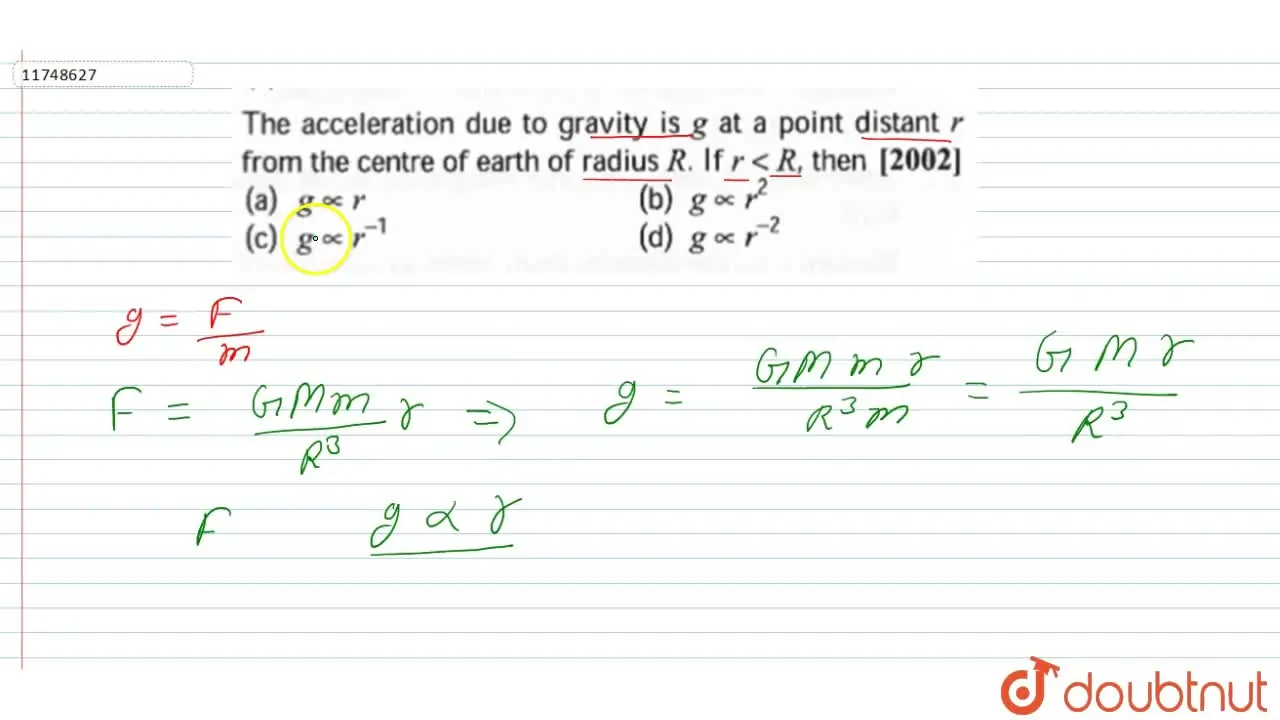 11748627
The acceleration due to gravity is g at a point distant r
from the centre of earth of radius R. If r < R, then [2002]
(a) g ∝ r (b) g ∝ r²
(c) g ∝ r⁻¹ (d) g ∝ r⁻²
g = F/m
F = GMm/R³ r ⇒ g = GMmr/R³m = GMr/R³
F g ∝ r
doubtnut